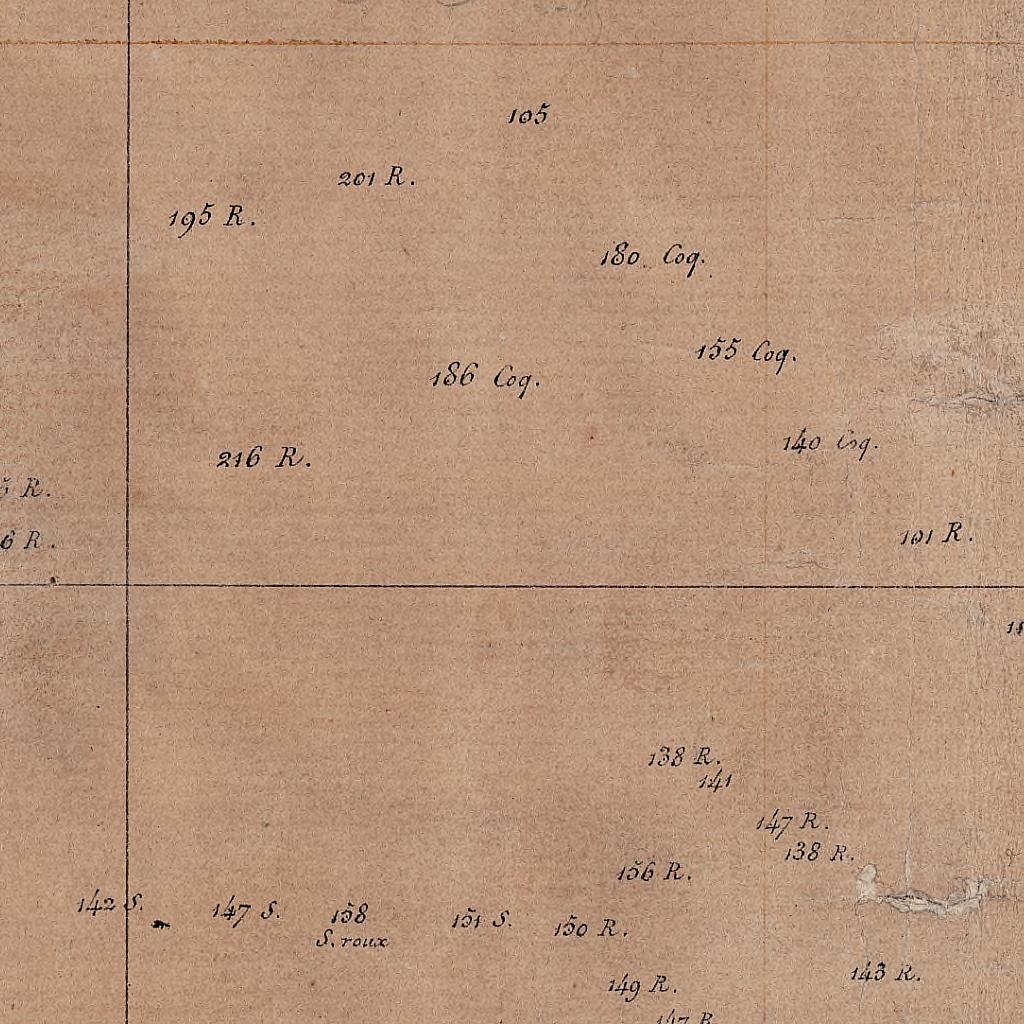 105
201 R.
195 R.
180 Coq.
155 Coq.
186 Coq.
140 Coq.
216 R.
R.
6 R.
101 R.
138 R.
141
147 R.
138 R.
156 R.
142 S.
147 S.
158
S. roux
151 S.
150 R.
143 R.
149 R.
147 R